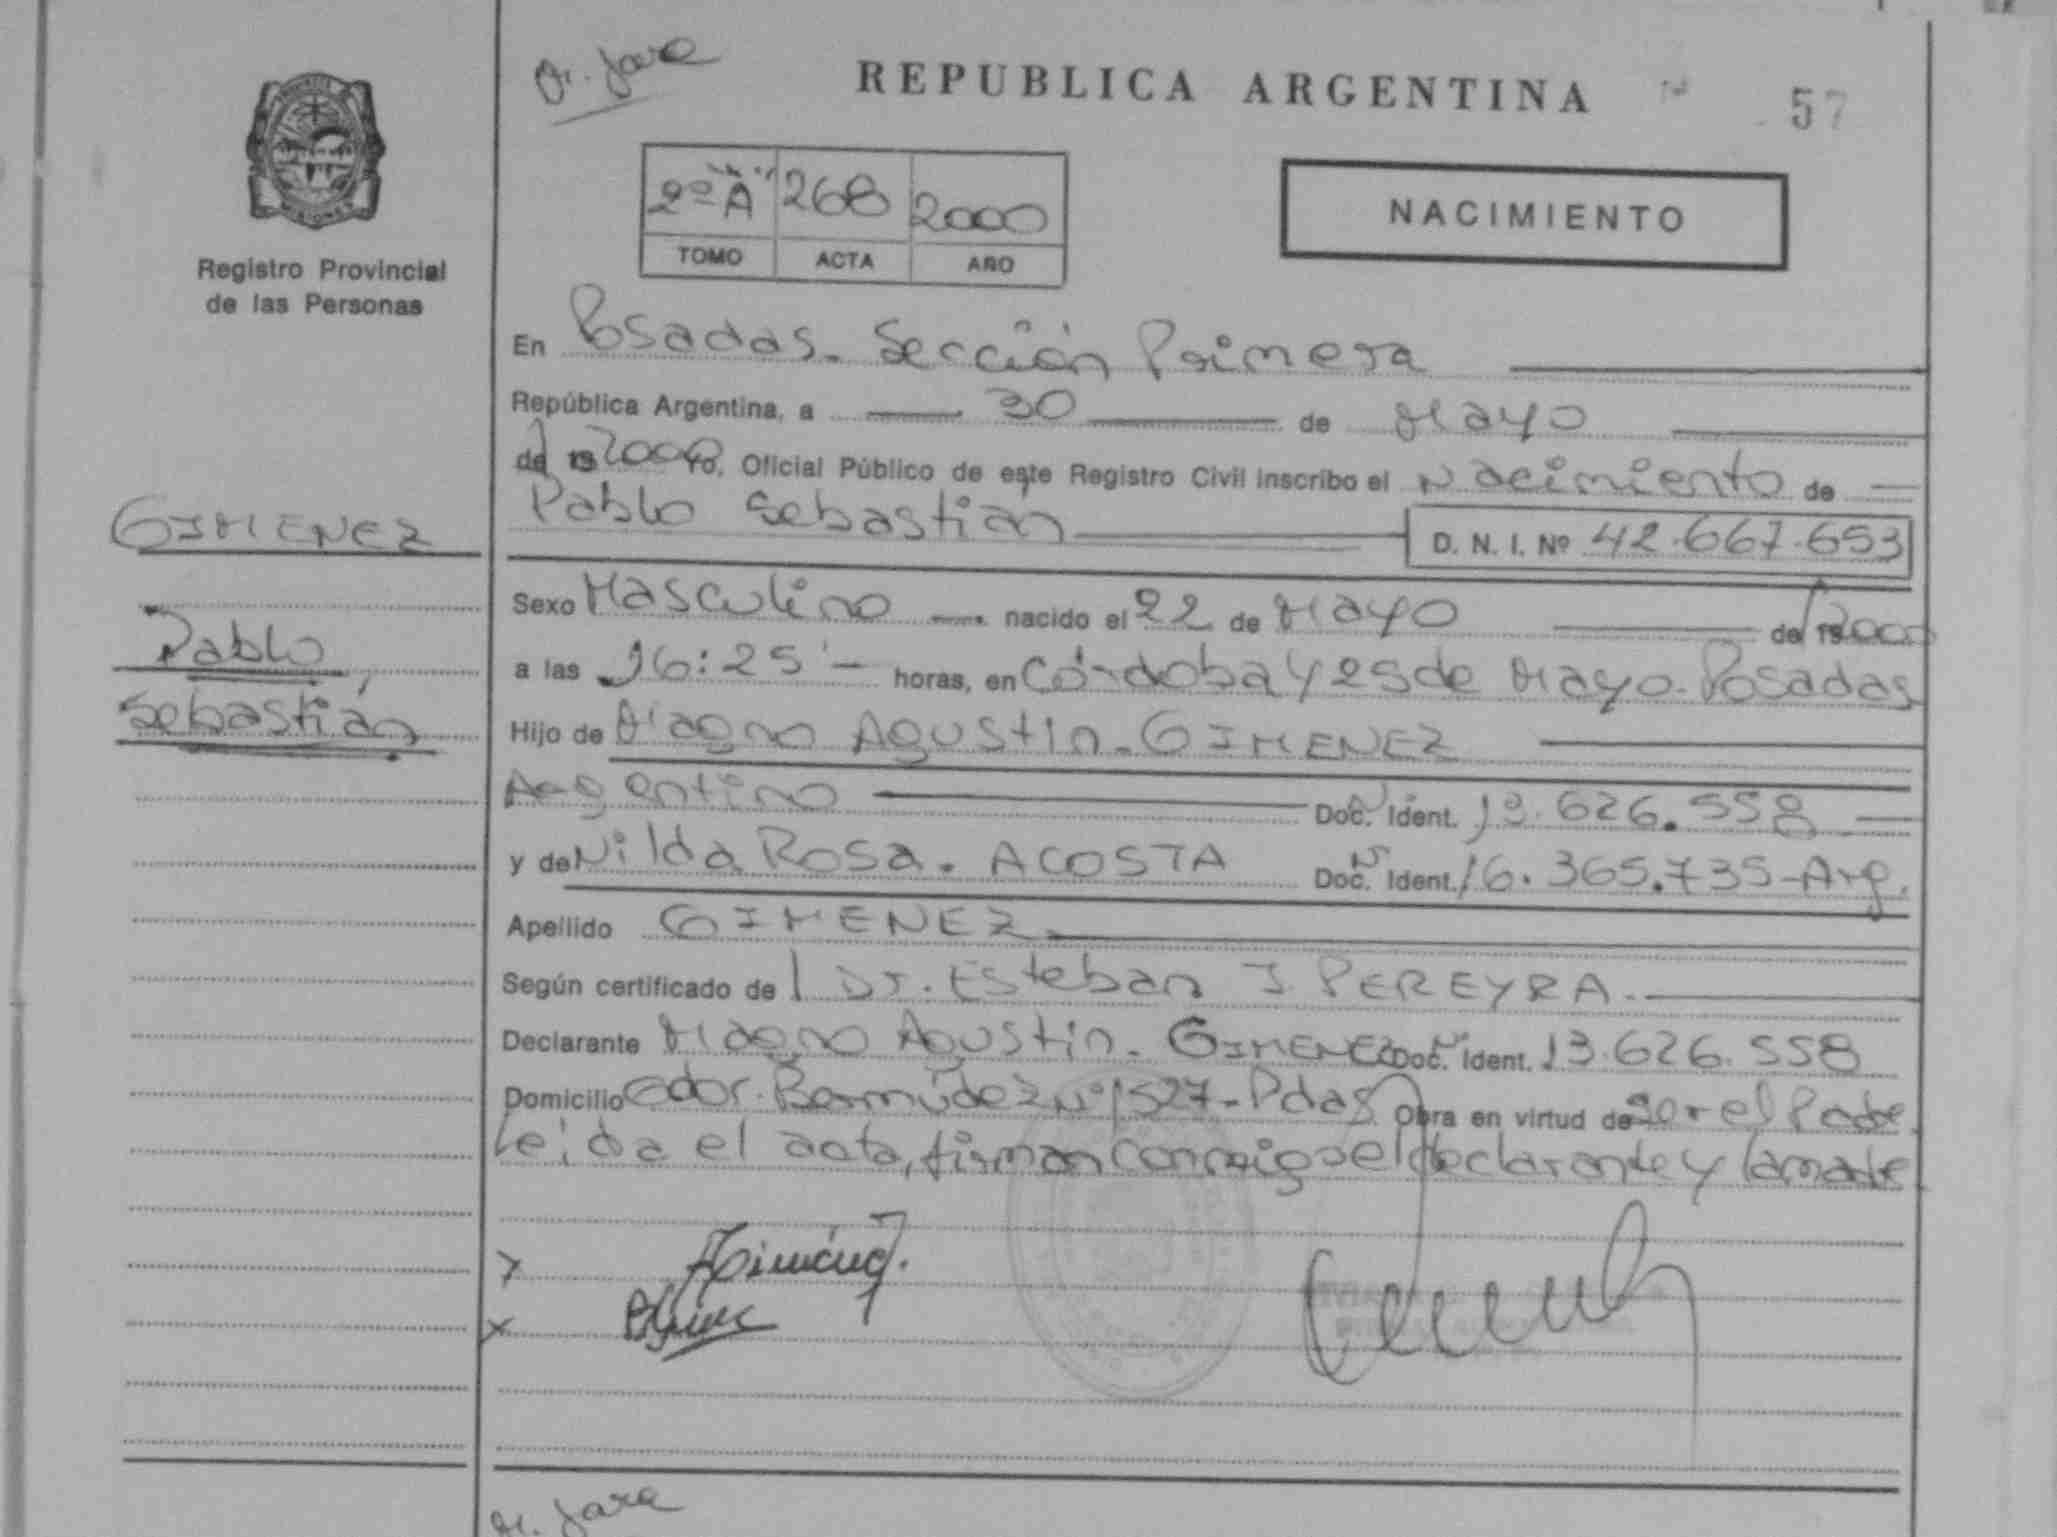 REPUBLICA ARGENTINA
57
2º "A" 268 2000
TOMO ACTA AÑO
NACIMIENTO
MISIONES
Registro Provincial
de las Personas
En Posadas. Sección Primera
República Argentina, a 30 de Mayo
de 19 2000 Yo, Oficial Público de este Registro Civil inscribo el Nacimiento de
Pablo Sebastián D. N. I. Nº 42.667.653
GIMENEZ
Pablo
Sebastián
Sexo Masculino nacido el 22 de Mayo de 19 2000
a las 16:25'- horas, en Córdoba y 25 de Mayo. Posadas
Hijo de Magno Agustin. GIMENEZ
Argentino Doc. Ident. 13.626.558
y de Nilda Rosa. ACOSTA Doc. Ident. 16.365.735-Arg.
Apellido GIMENEZ
Según certificado del Dr. Esteban J. PEREYRA.
Declarante Magno Agustin. GIMENEZ Doc. Ident. 13.626.558
Domicilio Bermúdez Nº 1527-Pdas. Obra en virtud de ser el Padre.
Leida el acta, firman conmigo el declarante y la madre